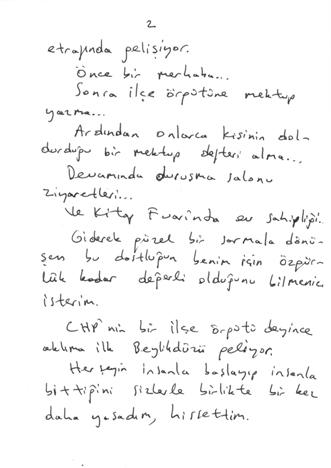 2
etrafında gelişiyor.
Önce bir merhaba...
Sonra ilçe örgütüne mektup
yazma...
Ardından onlarca kişinin dol-
durduğu bir mektup defteri alma...
Devamında duruşma salonu
ziyaretleri...
Ve Kitap Fuarında ev sahipliği..
Giderek güzel bir sarmala dönü-
şen bu dostluğun benim için özgür-
lük kadar değerli olduğunu bilmenizi
isterim.
CHP'nin bir ilçe örgütü deyince
aklıma ilk Beylikdüzü geliyor.
Herşeyin insanla başlayıp insanla
bittiğini sizlerle birlikte bir kez
daha yaşadım, hissettim.